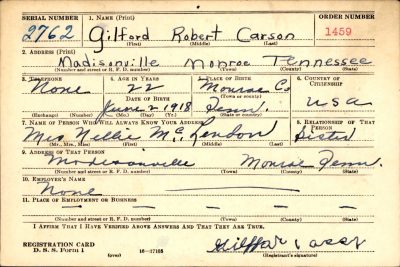 SERIAL NUMBER 1. NAME (Print) ORDER NUMBER
2762 Gilford Robert Carson 1459
(First) (Middle) (Last)
2. ADDRESS (Print)
Madisonville Monroe Tennessee
(Number and street or R. F. D. number) (Town) (County) (State)
3. TELEPHONE 4. AGE IN YEARS 5. PLACE OF BIRTH 6. COUNTRY OF CITIZENSHIP
None 22 Monroe Co.
DATE OF BIRTH
June 2 1918 Tenn. USA
(Exchange) (Number) (Mo.) (Day) (Yr.) (State or country)
7. NAME OF PERSON WHO WILL ALWAYS KNOW YOUR ADDRESS 8. RELATIONSHIP OF THAT PERSON
Mrs Nellie Mc Lendon Sister
(Mr., Mrs., Miss) (First) (Middle) (Last)
9. ADDRESS OF THAT PERSON
Madisonville Monroe Tenn.
(Number and street or R. F. D. number) (Town) (County) (State)
10. EMPLOYER'S NAME
None
11. PLACE OF EMPLOYMENT OR BUSINESS
(Number and street or R. F. D. number) (Town) (County) (State)
I AFFIRM THAT I HAVE VERIFIED ABOVE ANSWERS AND THAT THEY ARE TRUE.
REGISTRATION CARD
D. S. S. Form 1 (over) 16—17105 (Registrant's signature)